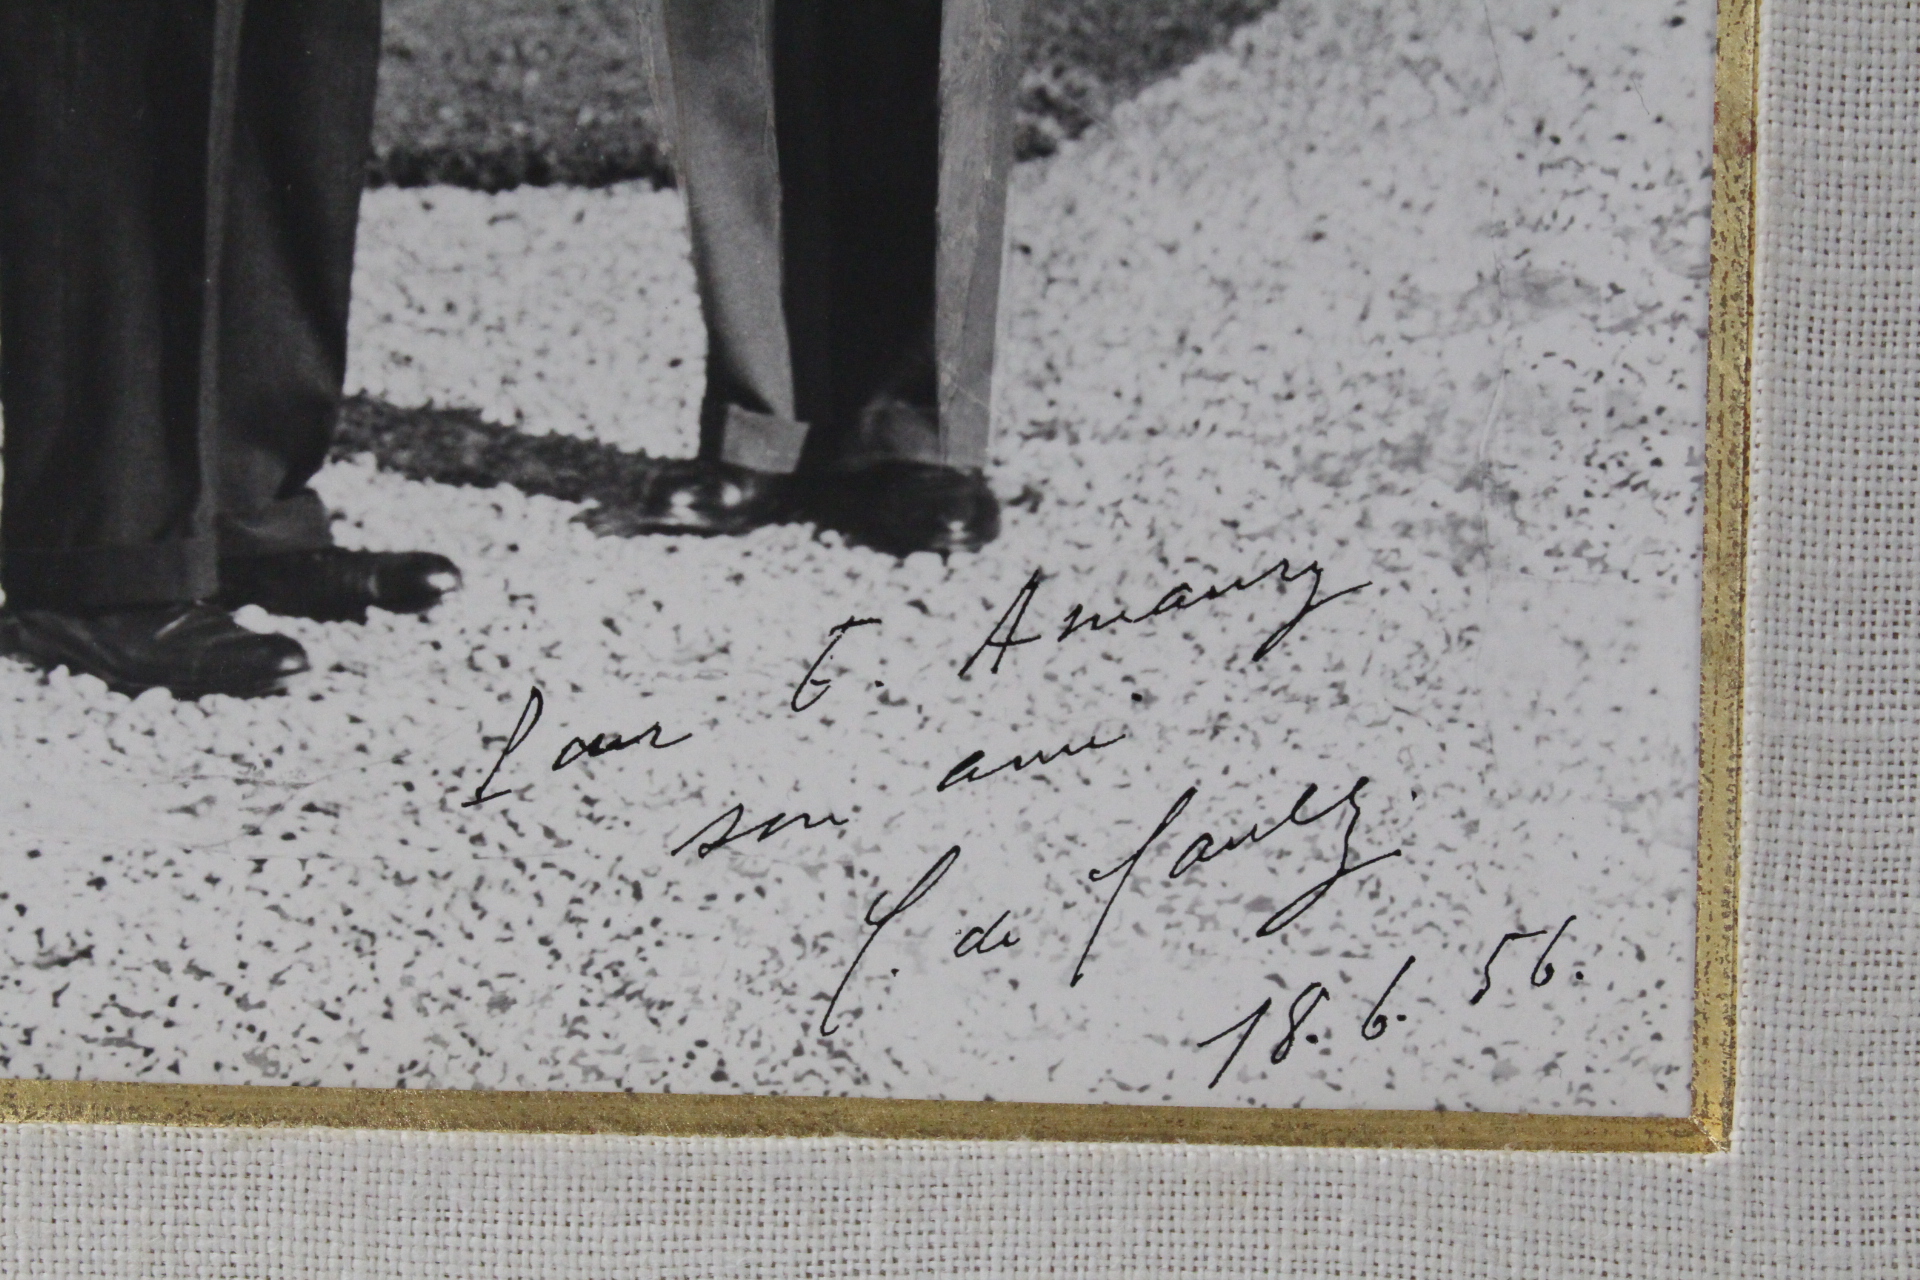 Pour E. Amaury
son ami.
C. de Gaulle.
18. 6. 56.